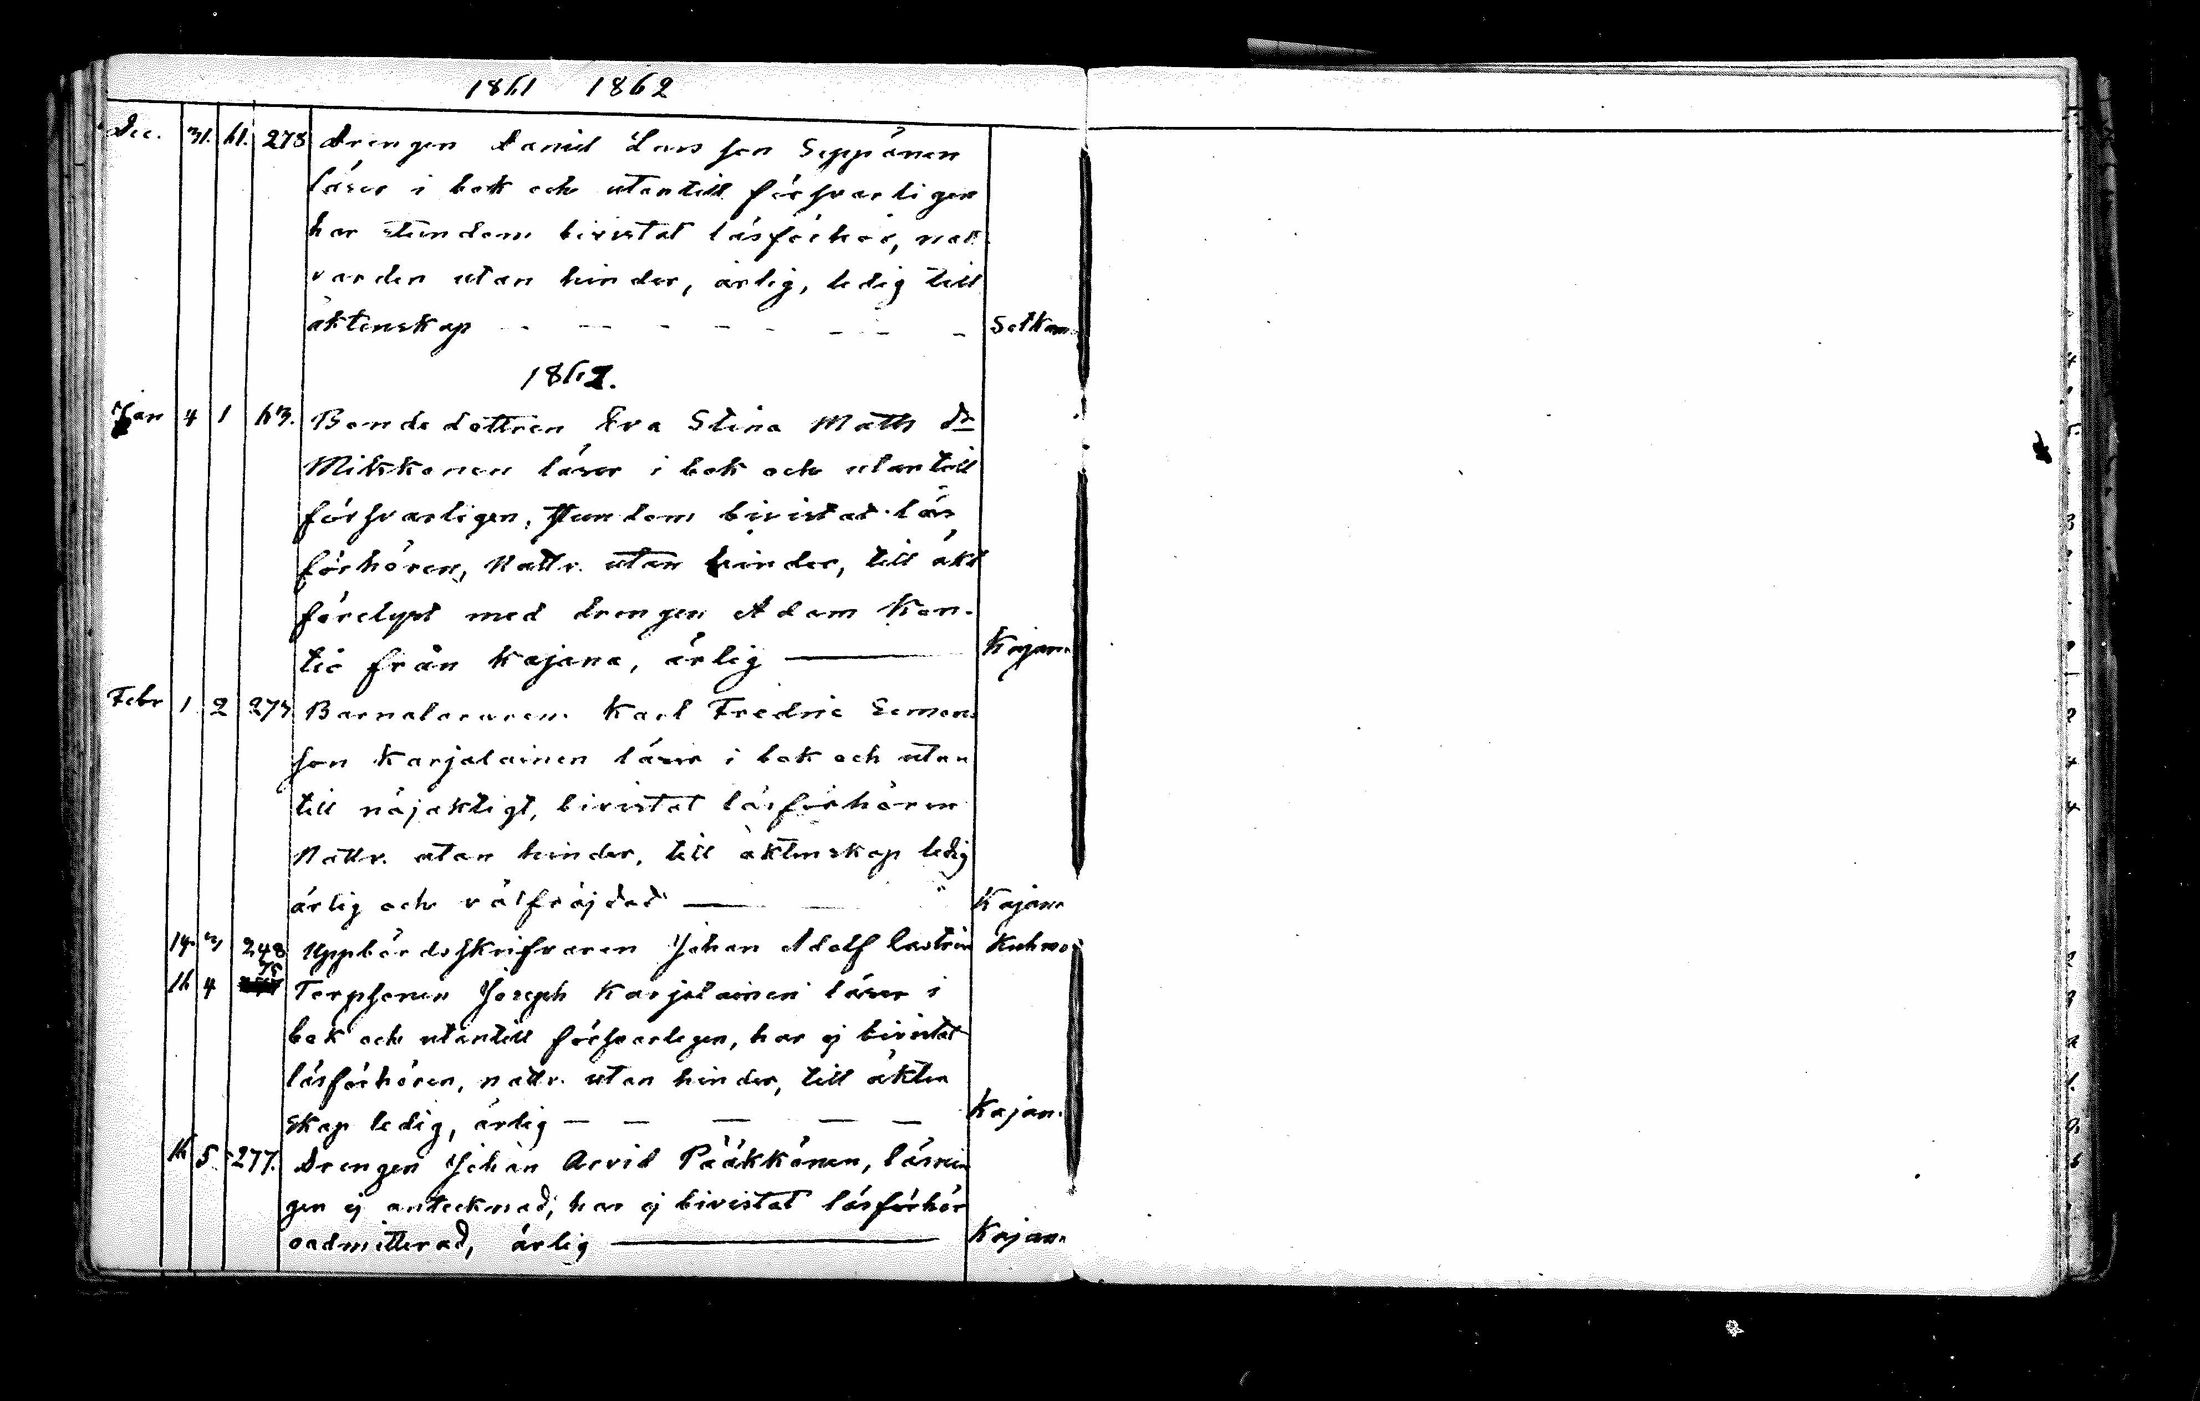 1861 1862
Dec. 31. 61. 278 Drengen Daniel Lars son Seppänen
läser i bok och utantill försvarligen
har stundom bivistat läsförhör, nat
varden utan hinder, ärlig, ledig till
äktenskap - - - - - - - - Sotkam.
1862.
Jan 4 1 63. Bonde dottren Eva Stina Matts dr
Mikkonen läser i bok och utantill
försvarligen, stundom bivistat läs
förhören, Nattv. utan hinder, till äkt
förelyst med drengen Adam Kon-
tio från Kajana, ärlig — Kajan.
Febr 1 2 273 Barnalararen Karl Fredric Semons
son Karjalainen läser i bok och utan
till nöjaktigt, bivistat läsförhören
Nattv. utan hinder, till äktenskap ledig
ärlig och välfräjdad — Kajan.
14. 3 248 Uppbördsskrifvaren Johan Adolf Castrén Kuhmo
16 4 75 Torpsonen Joseph Karjalainen läser i
bok och utantill försvarligen, har ej bivistat
läsförhören, nattv. utan hinder, till äkten
skap ledig, ärlig — — — — — Kajan.
16 5. 277. Drengen Johan Arvid Pääkkönen, läsnin
gen ej antecknad, har ej bivistat läsförhör
oadmitterad, ärlig — Kajan.